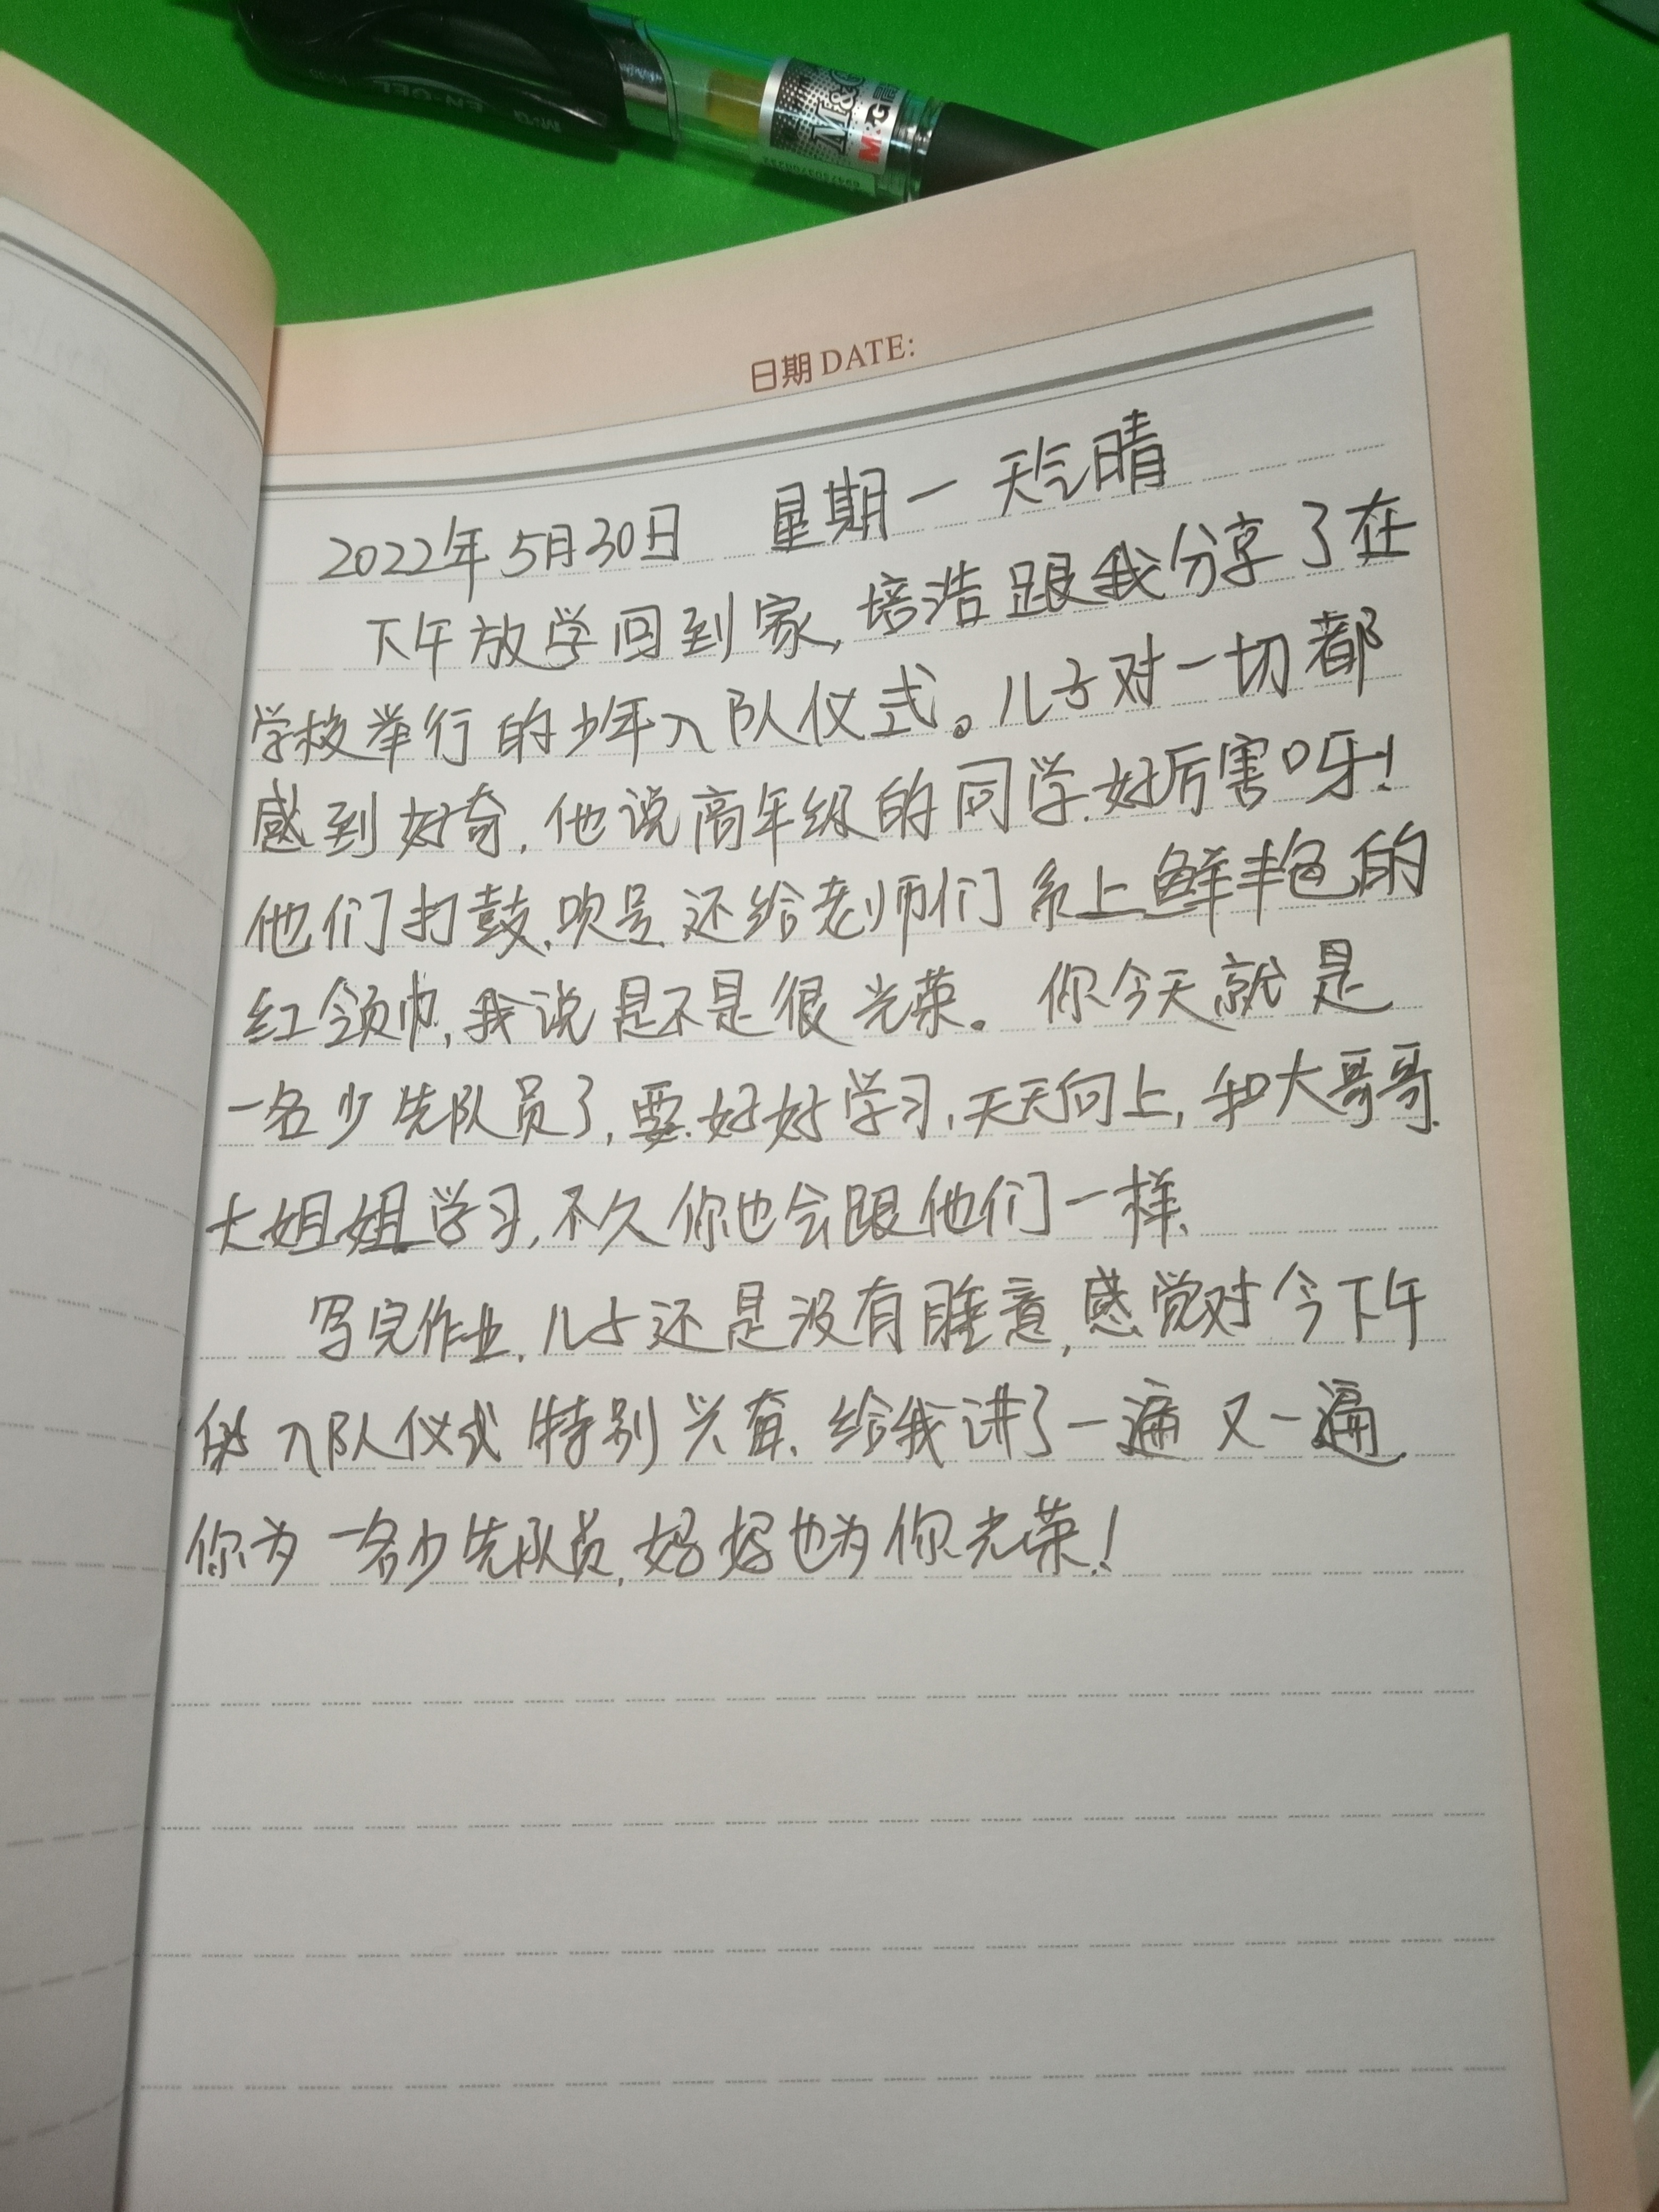 M&G
M&G
EN-GEL
日期 DATE:
2022年5月30日 星期一 天气晴
下午放学回到家,培浩跟我分享了在
学校举行的少年入队仪式。儿子对一切都
感到好奇,他说高年级的同学好厉害呀!
他们打鼓、吹号,还给老师们系上鲜艳的
红领巾,我说是不是很光荣。你今天就是
一名少先队员了,要好好学习,天天向上,和大哥哥
大姐姐学习,不久你也会跟他们一样、
写完作业,儿子还是没有睡意,感觉对今下午
的入队仪式特别兴奋、给我讲了一遍又一遍、
你为一名少先队员,妈妈也为你光荣!